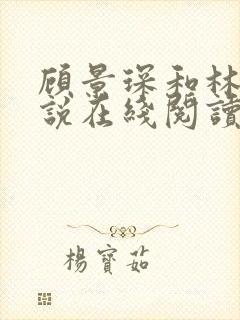 顾景琛和林
说在綫閱讀
楊寶茹